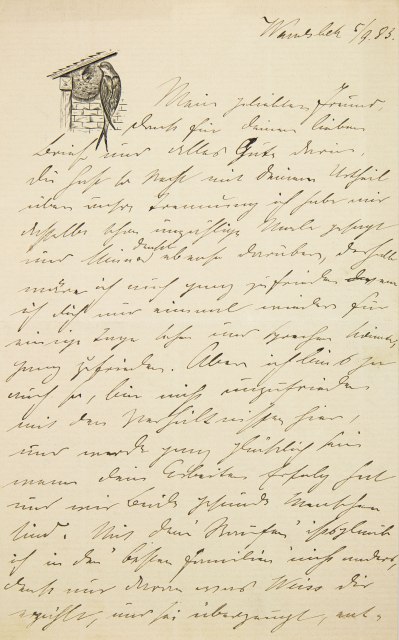 Wandsbek 5/9 85.
Mein geliebter Freund,
dank für deinen lieben
Brief und alles Gute darin.
Du hast so Recht mit deinem Urtheil
über unsere Trennung ich habe mir
dasselbe schon unzählige Male gesagt
und Minna denkt ebenso darüber, deshalb
wäre ich auch ganz zufrieden wenn
ich dich nur einmal wieder für
einige Tage sehen und sprechen könnte,
ganz zufrieden. Aber ich bin's ja
auch so, bin nicht unzufrieden
mit den Verhältnissen hier,
und werde ganz glücklich sein
wenn dein Arbeiten Erfolg hat
und wir beide gesunde Menschen
sind. Mit dem ist's glaub
ich in den besten Familien nicht anders,
denk nur daran was Weiss dir
erzählt, und sei überzeugt,